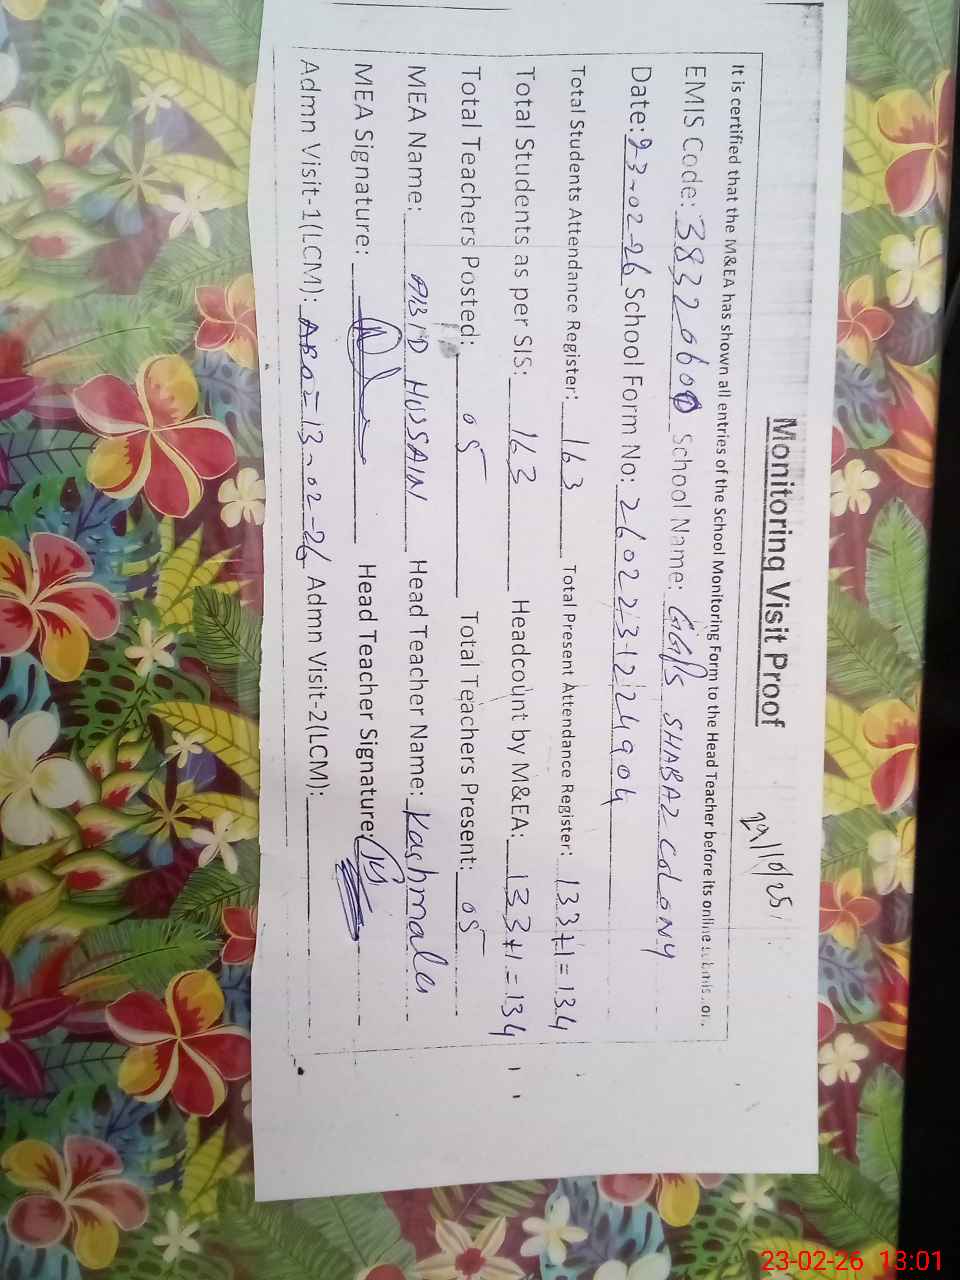 Monitoring Visit Proof
29/10/25
It is certified that the M&EA has shown all entries of the School Monitoring Form to the Head Teacher before its online submission.
EMIS Code: 38320600 School Name: GGPS SHABAZ COLONY
Date: 23-02-26 School Form No: 2602231224904
Total Students Attendance Register: 163 Total Present Attendance Register: 133+1=134
Total Students as per SIS: 163 Headcount by M&EA: 133+1=134
Total Teachers Posted: 05 Total Teachers Present: 05
MEA Name: ABID HUSSAIN Head Teacher Name: Kashmala
MEA Signature: Head Teacher Signature:
Admn Visit-1(LCM): 13-02-26 Admn Visit-2(LCM):
23-02-26 13:01